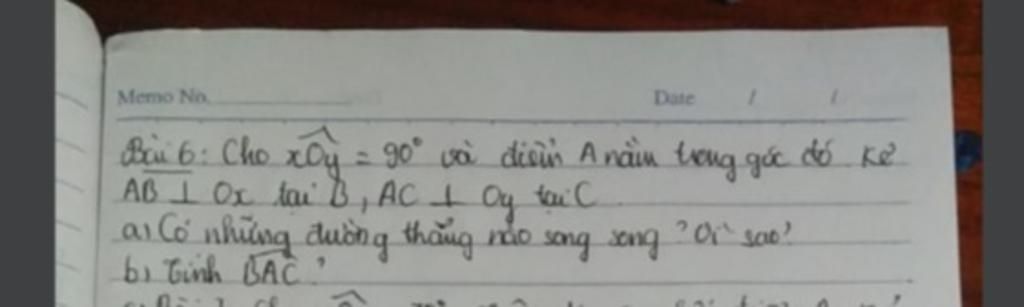 Memo No.
Date / /
Bài 6: Cho xOy = 90° và điểm A nằm trong góc đó Kẻ
AB ⊥ Ox tại B, AC ⊥ Oy tại C
a) Có những đường thẳng nào song song ? Vì sao?
b) Tính BAC ?